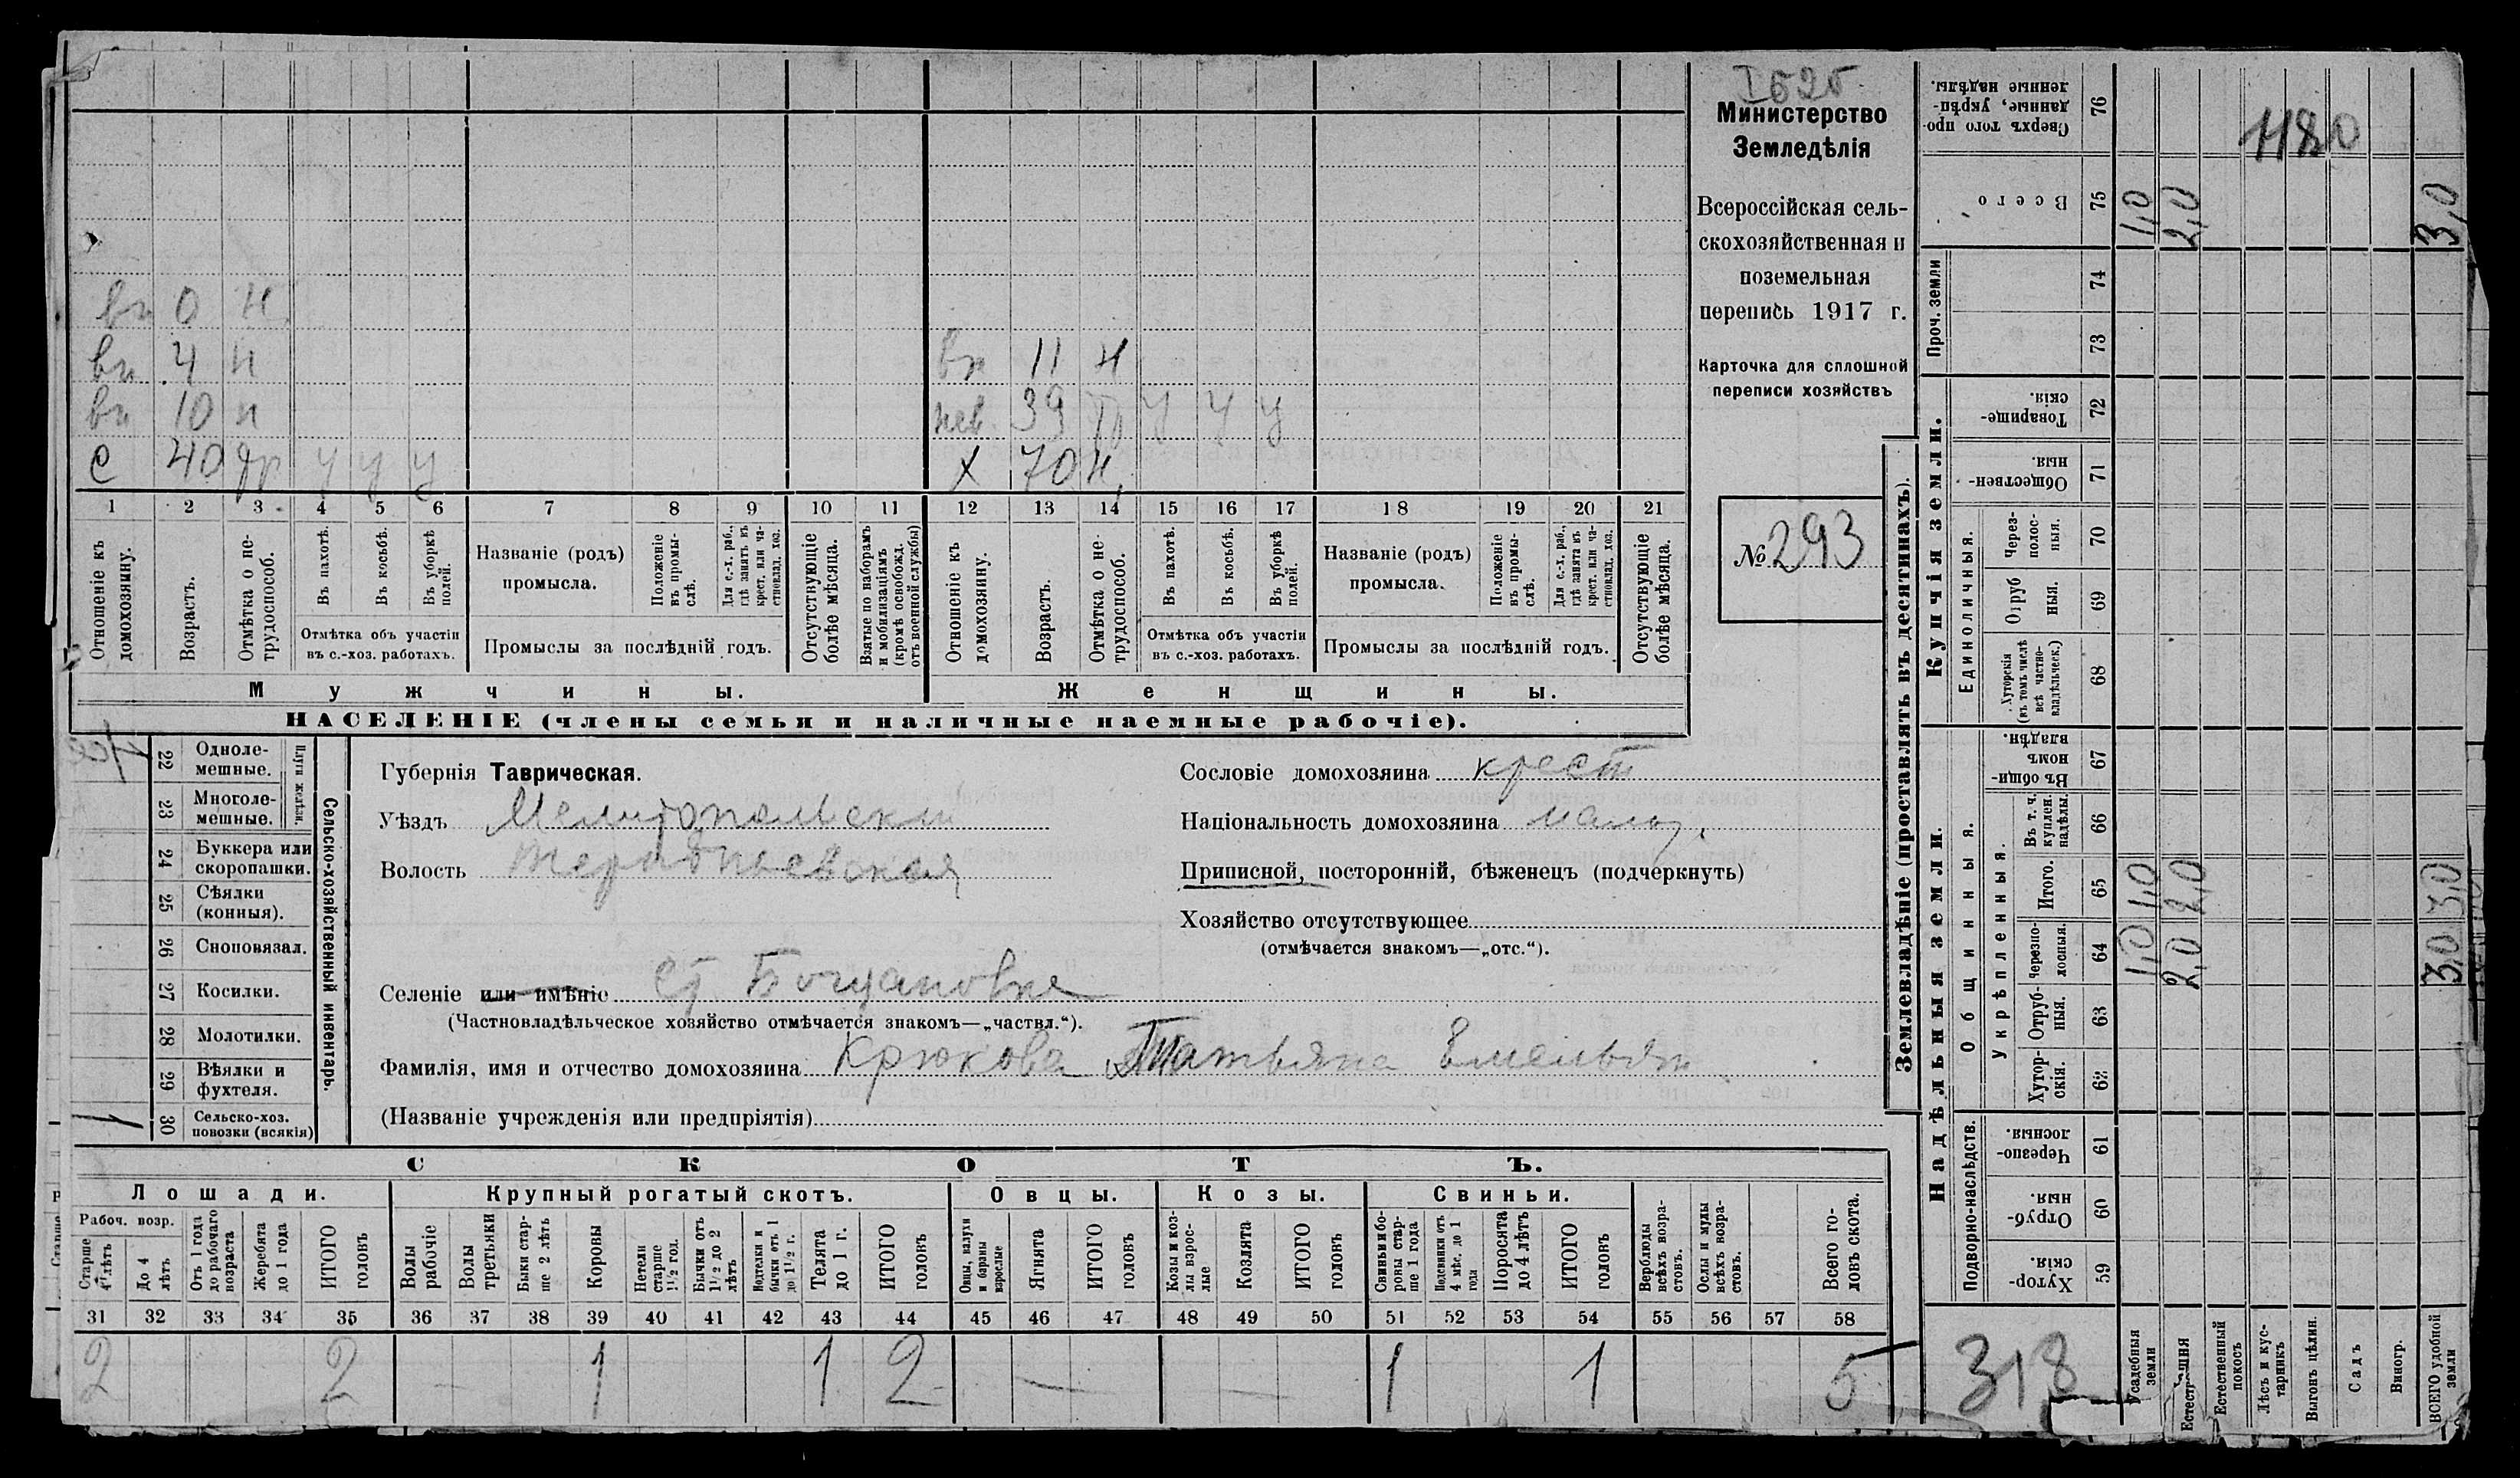 вн 0 н
вн 4 н
вн 10 н
с 40 др у у у
вн 11 н
нев. 39 у у у
Х 70 н
1 2 3 4 5 6 7 8 9 10 11 12 13 14 15 16 17 18 19 20 21
Отношеніе къ домохозяину.
Возрастъ.
Отмѣтка о нетрудоспособ.
Въ пахотѣ.
Въ косьбѣ.
Въ уборкѣ полей.
Отмѣтка объ участіи въ с.-хоз. работахъ.
Названіе (родъ) промысла.
Положеніе въ промыслѣ.
Для с.-х. раб., гдѣ занятъ въ крест. или частновлад. хоз.
Промыслы за послѣдній годъ.
Отсутствующіе болѣе мѣсяца.
Взятые по наборамъ и мобилизаціямъ (кромѣ освобожд. отъ военной службы)
Отношеніе къ домохозяину.
Возрастъ.
Отмѣтка о нетрудоспособ.
Въ пахотѣ.
Въ косьбѣ.
Въ уборкѣ полей.
Отмѣтка объ участіи въ с.-хоз. работахъ.
Названіе (родъ) промысла.
Положеніе въ промыслѣ.
Для с.-х. раб., гдѣ занята въ крест. или частновлад. хоз.
Промыслы за послѣдній годъ.
Отсутствующіе болѣе мѣсяца.
Мужчины.
Женщины.
НАСЕЛЕНІЕ (члены семьи и наличные наемные рабочіе).
Министерство
Земледѣлія
Всероссійская сель-
скохозяйственная и
поземельная
перепись 1917 г.
Карточка для сплошной
переписи хозяйствъ
№ 293
22 Однолемешные.
23 Многолемешные.
Плуги желѣзн.
24 Буккера или скоропашки.
25 Сѣялки (конныя).
26 Сноповязал.
27 Косилки.
28 Молотилки.
29 Вѣялки и фухтеля.
1 30 Сельско-хоз. повозки (всякія)
Сельско-хозяйственный инвентарь.
Губернія Таврическая.
Уѣздъ Мелитопольский
Волость
Селеніе или имѣніе Богдановка
(Частновладѣльческое хозяйство отмѣчается знакомъ—„частвл.“).
Фамилія, имя и отчество домохозяина Крюкова Татьяна Емельян
(Названіе учрежденія или предпріятія)
Сословіе домохозяина крест
Національность домохозяина малор.
Приписной, посторонній, бѣженецъ (подчеркнуть)
Хозяйство отсутствующее
(отмѣчается знакомъ—„отс.“).
СКОТЪ.
Лошади.
Крупный рогатый скотъ.
Овцы.
Козы.
Свиньи.
Рабоч. возр.
Старше 4 лѣтъ
До 4 лѣтъ
Отъ 1 года до рабочаго возраста
Жеребята до 1 года
ИТОГО головъ
Волы рабочіе
Волы третьяки
Быки старше 2 лѣтъ
Коровы
Нетели старше 1½ год.
Бычки отъ 1½ до 2 лѣтъ
Нодтелки и бычки отъ 1 до 1½ г.
Телята до 1 г.
ИТОГО головъ
Овцы, валухи и бараны взрослые
Ягнята
ИТОГО головъ
Козы и козлы взрослые
Козлята
ИТОГО головъ
Свиньи и боровы старше 1 года
Подсвинки отъ 4 мѣс. до 1 года
Поросята до 4 лѣтъ
ИТОГО головъ
Верблюды всѣхъ возрастовъ.
Ослы и мулы всѣхъ возрастовъ.
Всего головъ скота.
31 32 33 34 35 36 37 38 39 40 41 42 43 44 45 46 47 48 49 50 51 52 53 54 55 56 57 58
2 2 — 1 1 2 — — 1 1 5
Землевладѣніе (проставлять въ десятинахъ).
Купчія земли.
Надѣльныя земли.
Сверхъ того проданные, укрѣпленные надѣлы. 76
1180
Всего 75 1,0 2,0 3,0
Проч. земли 74 73
Товарищескія. 72
Общественныя. 71
Единоличныя.
Черезполосныя. 70
Отрубныя. 69
Хуторскія (въ томъ числѣ всѣ частновладѣльческ.) 68
Общинныя.
Въ общинномъ владѣн. 67
Укрѣпленныя.
Въ т. ч. куплен. надѣлы. 66
Итого. 65 1,0 2,0 3,0
Черезполосныя. 64 1,0 2,0 3,0
Отрубныя. 63
Хуторскія. 62
Подворно-наслѣдств.
Черезполосныя. 61
Отрубныя. 60
Хуторскія. 59
318
Усадебныя земли
Естественный покосъ
Лѣсъ и кустарникъ
Выгонъ цѣлин.
Садъ
Виногр.
ВСЕГО удобной земли